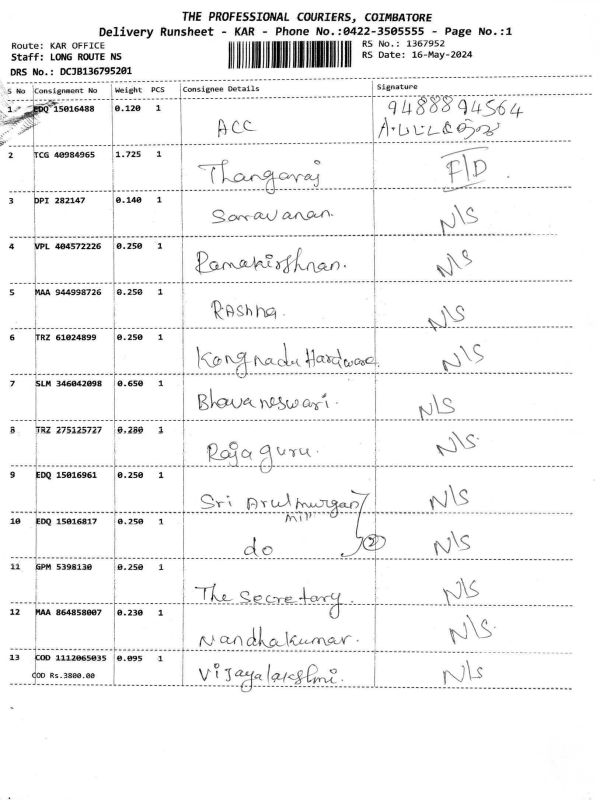 THE PROFESSIONAL COURIERS, COIMBATORE
Delivery Runsheet - KAR - Phone No.:0422-3505555 - Page No.:1
Route: KAR OFFICE
Staff: LONG ROUTE NS
DRS No.: DCJB136795201
RS No.: 1367952
RS Date: 16-May-2024
S No Consignment No Weight PCS Consignee Details Signature
1 EDQ 15016488 0.120 1 ACC 9488894564
2 TCG 40984965 1.725 1 Thangaraj F/D
3 DPI 282147 0.140 1 Saravanan. N/S
4 VPL 404572226 0.250 1 Ramakirshnan. N/S
5 MAA 944998726 0.250 1 RAShna. N/S
6 TRZ 61024899 0.250 1 Kongnadu Hardware. N/S
7 SLM 346042098 0.650 1 Bhavaneswari. N/S
8 TRZ 275125727 0.280 1 Raja guru. N/S.
9 EDQ 15016961 0.250 1 Sri Arulmurgan N/S
mill
10 EDQ 15016817 0.250 1 do 2 N/S
11 GPM 5398130 0.250 1 The Secretary. N/S
12 MAA 864858007 0.230 1 Nandhakumar. N/S.
13 COD 1112065035 0.095 1 Vijayalakshmi. N/S
COD Rs.3800.00